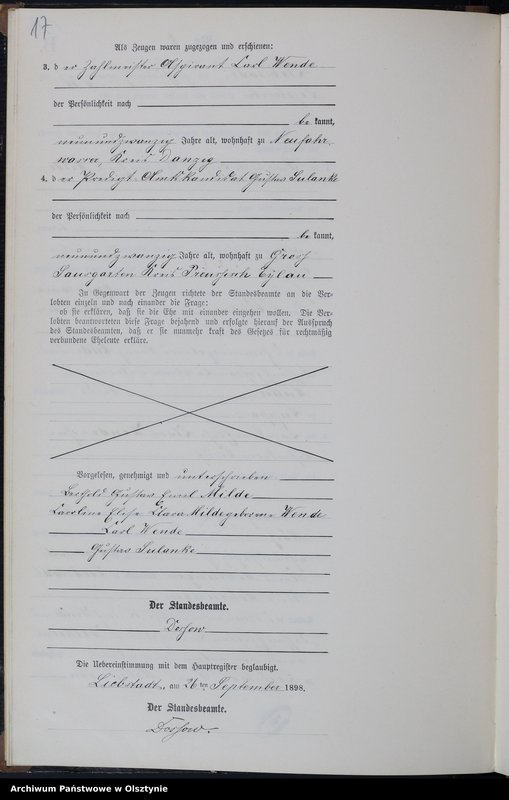 17
Als Zeugen waren zugezogen und erschienen:
3. der Zahlmeister Aspirant Karl Wende
der Persönlichkeit nach
be kannt,
neunundzwanzig Jahre alt, wohnhaft zu Neufahr-
wasser, Kreis Danzig
4. der Predigt-Amtskandidat Gustav Sulanke
der Persönlichkeit nach
be kannt,
neunundzwanzig Jahre alt, wohnhaft zu Gross
Saussgarten Kreis Preussisch Eylau
In Gegenwart der Zeugen richtete der Standesbeamte an die Ver-
lobten einzeln und nach einander die Frage:
ob sie erklären, daß sie die Ehe mit einander eingehen wollen. Die Ver-
lobten beantworteten diese Frage bejahend und erfolgte hierauf der Ausspruch
des Standesbeamten, daß er sie nunmehr kraft des Gesetzes für rechtmäßig
verbundene Eheleute erkläre.
Vorgelesen, genehmigt und unterschrieben
Gustav Emil Milde
Caroline Elise Clara Milde geborene Wende
Karl Wende
Gustav Sulanke
Der Standesbeamte.
Die Uebereinstimmung mit dem Hauptregister beglaubigt.
Liebstadt, am 26ten September 1898.
Der Standesbeamte.
Archiwum Państwowe w Olsztynie